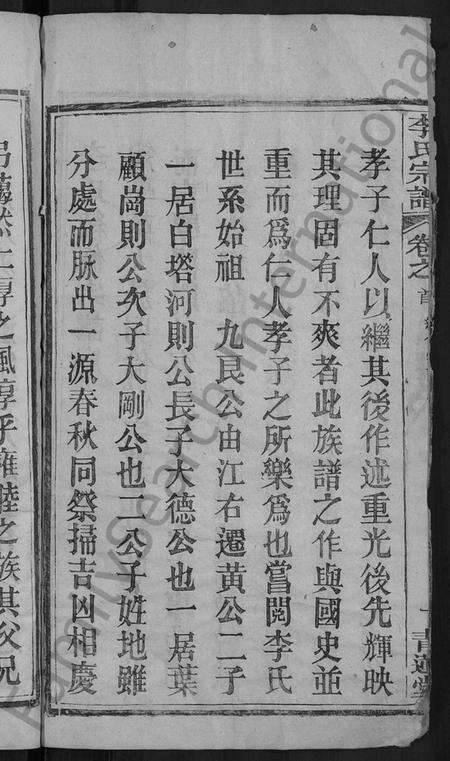 李氏宗譜
卷之首
孝子仁人以繼其後作述重光後先輝映
其理固有不爽者此族譜之作與國史並
重而爲仁人孝子之所樂爲也嘗閱李氏
世系始祖 九良公由江右遷黃公二子
一居白塔河則公長子大德公也一居葉
顧崗則公次子大剛公也二公子姓地雖
分處而脉出一源春秋同祭掃吉凶相慶
仁淳之風淳乎雍睦之族其父兄
FamilySearch International